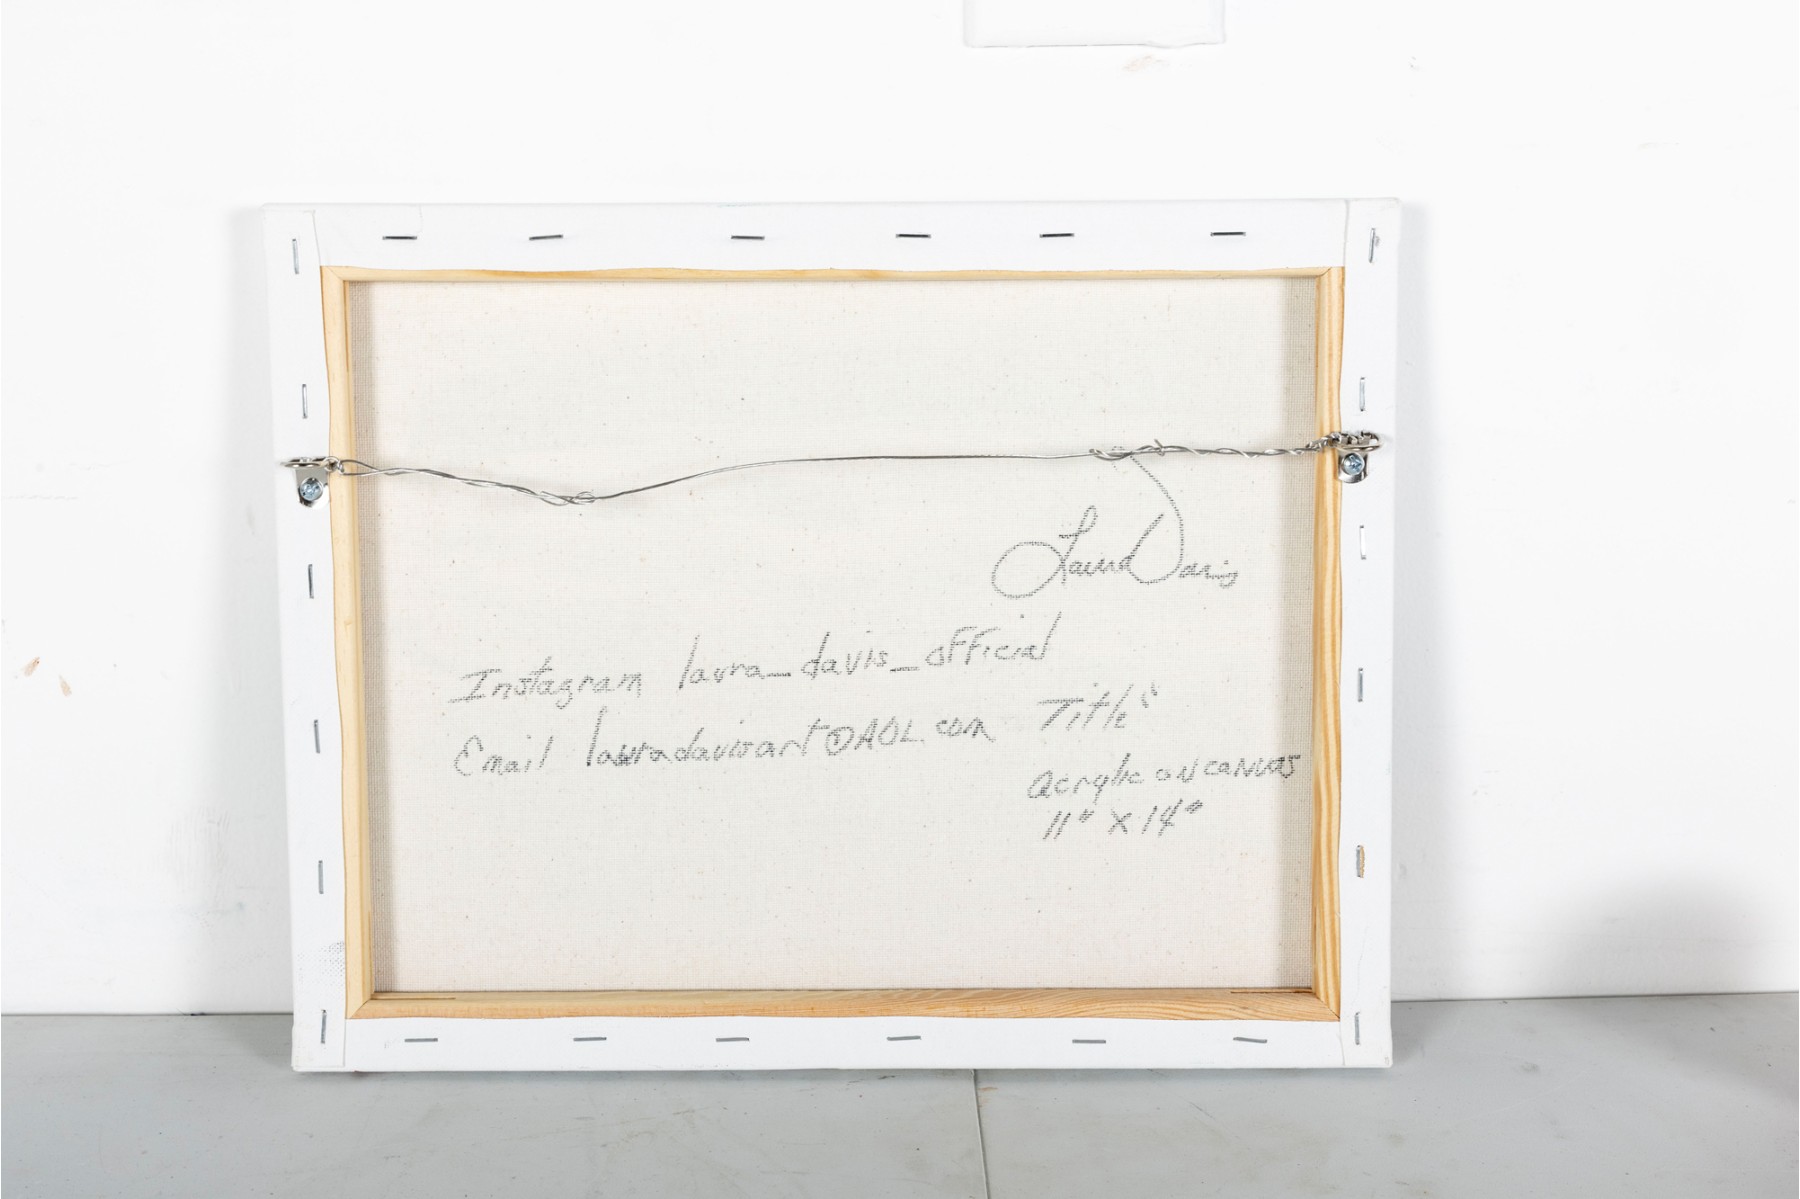 Laura Davis
Instagram laura_davis_official
Email lauradavisart@AOL.com
Title"
Acrylic on canvas
11" x 14"